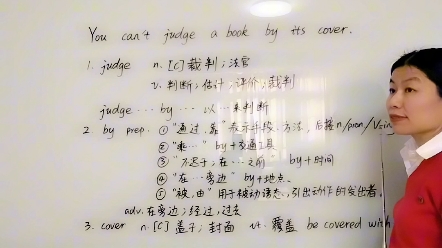 You can't judge a book by its cover.
1. judge n. [C] 裁判；法官
v. 判断；估计；评价；裁判
judge …… by …… 以…来判断
2. by prep. ① "通过，靠" 表示手段、方法，后接 n/pron/V-ing
② "乘…" by+交通工具
③ "不迟于；在…之前" by+时间
④ "在…旁边" by+地点
⑤ "被，由" 用于被动语态，引出动作的发出者
adv. 在旁边；经过，过去
3. cover n. [C] 盖子；封面 vt. 覆盖 be covered with